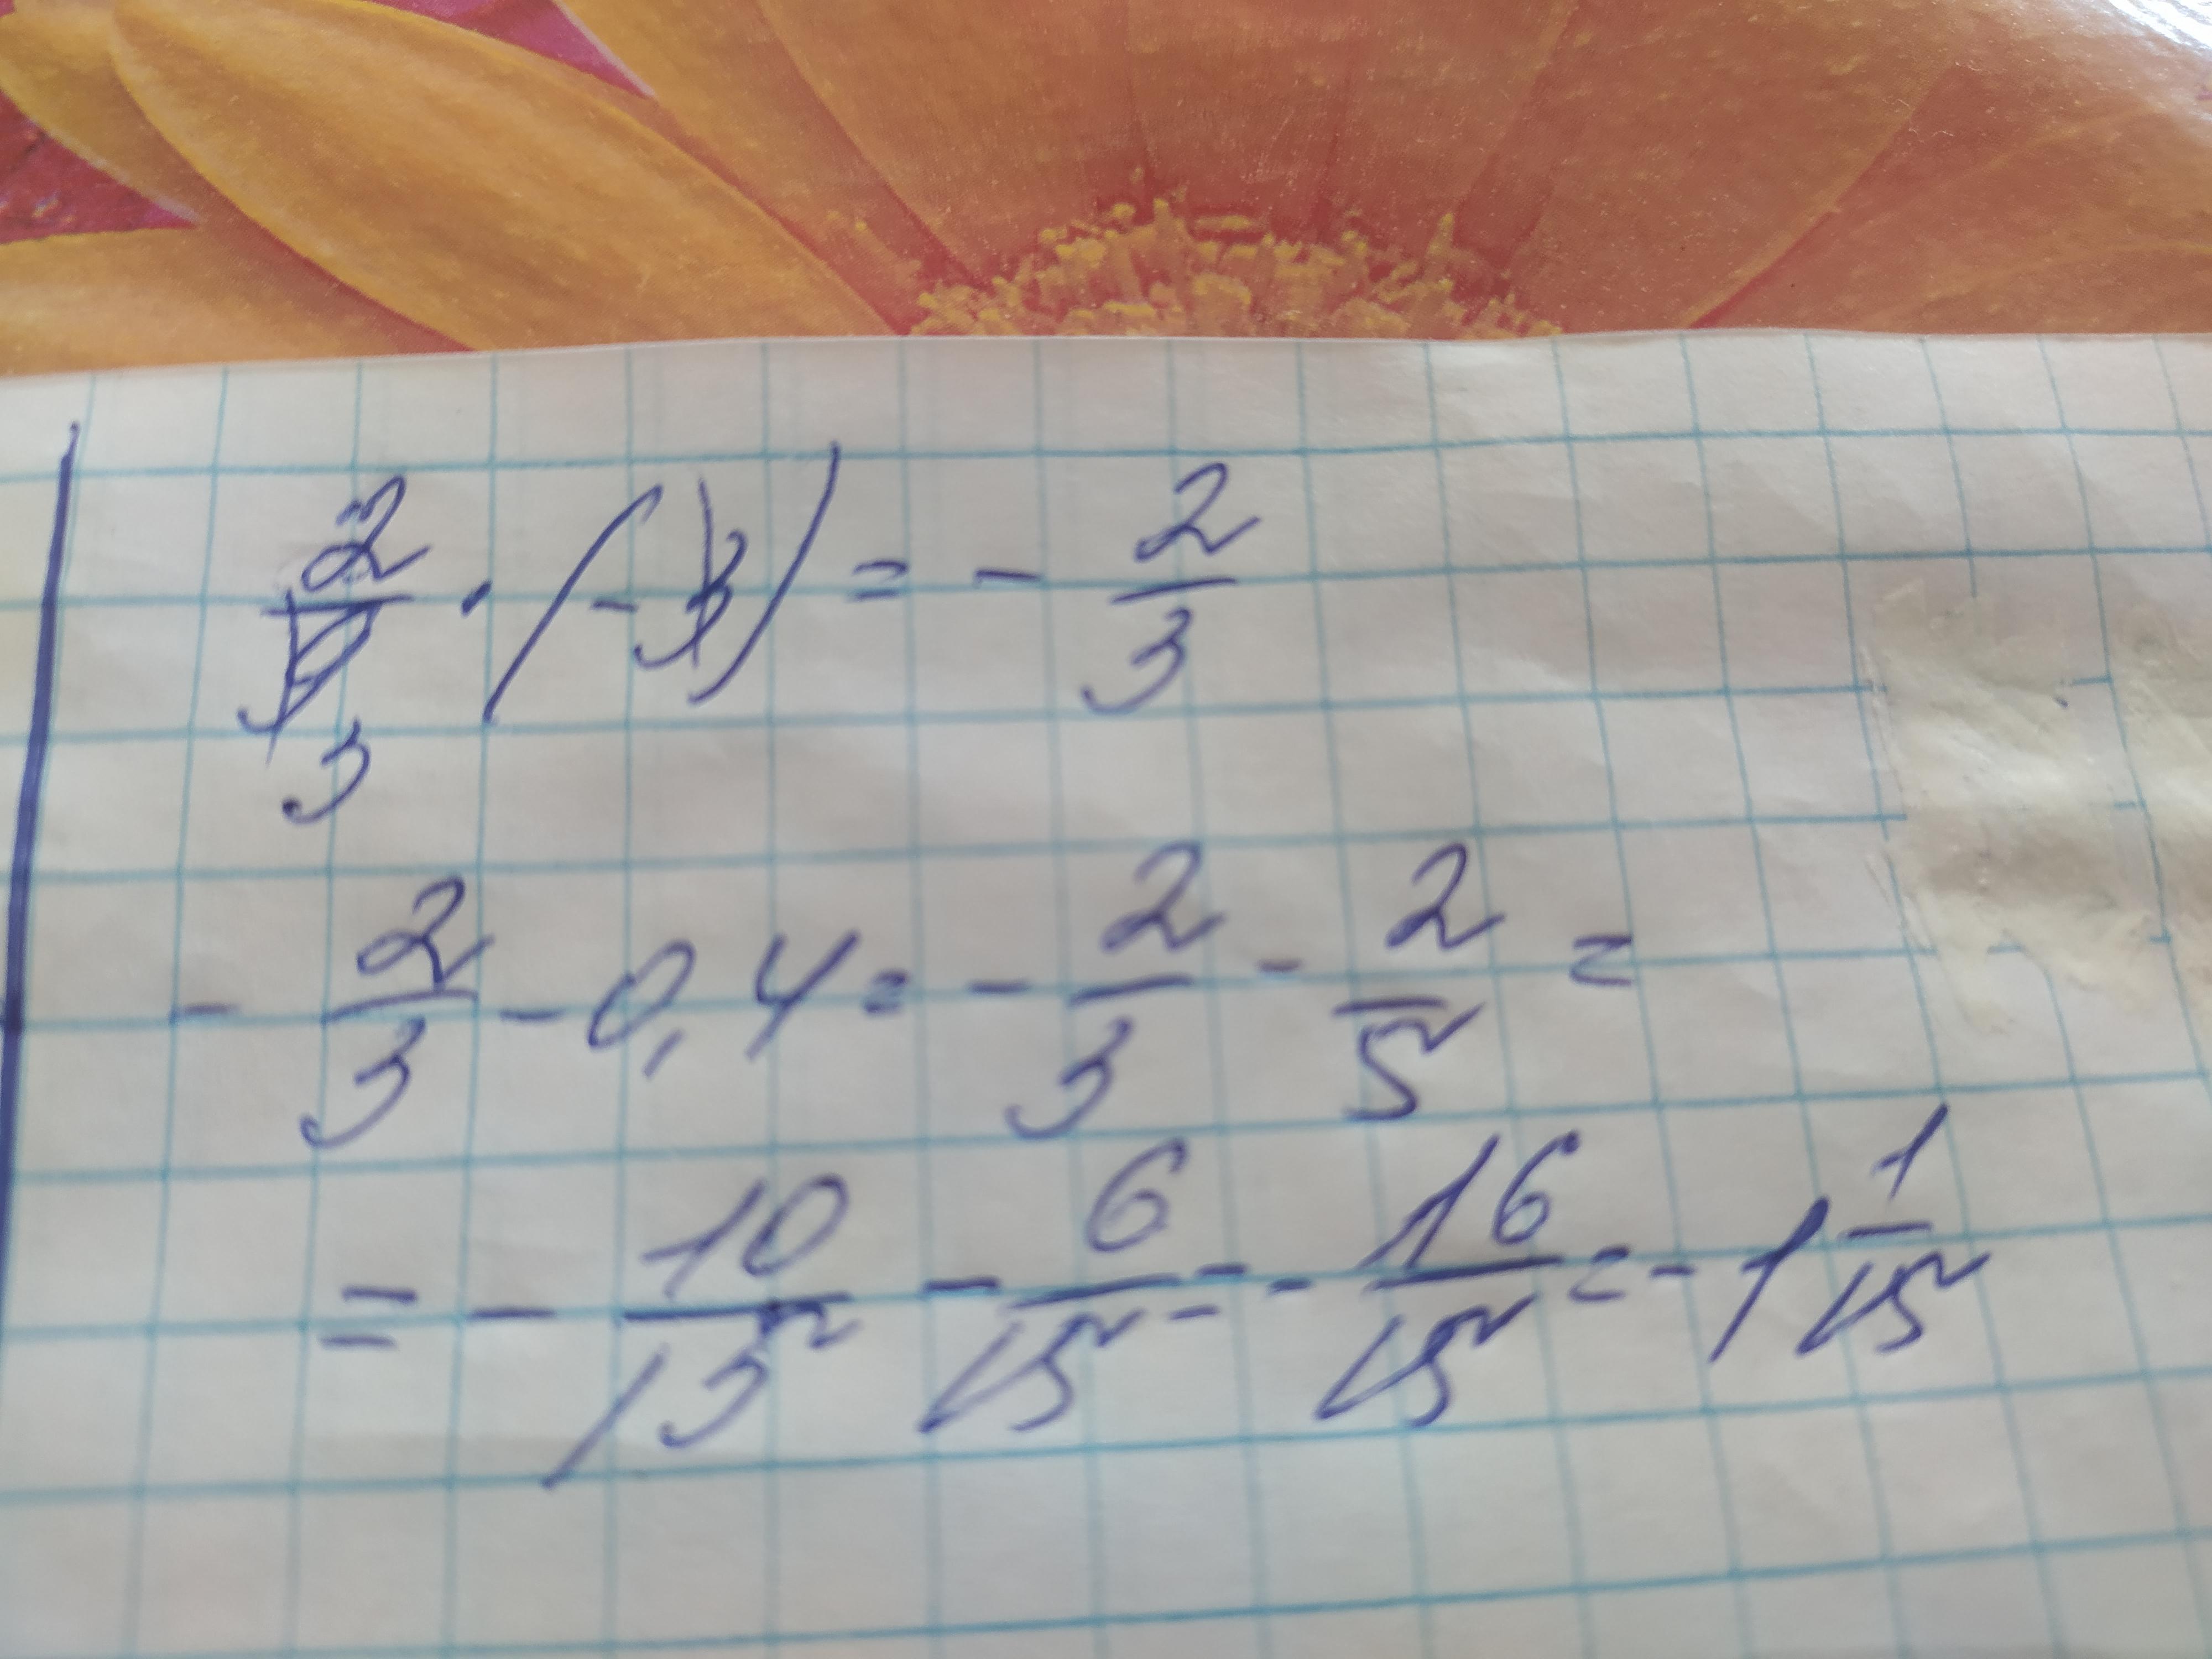 2/9 · (-3) = - 2/3
3
- 2/3 - 0,4 = - 2/3 - 2/5 =
= - 10/15 - 6/15 = - 16/15 = - 1 1/15